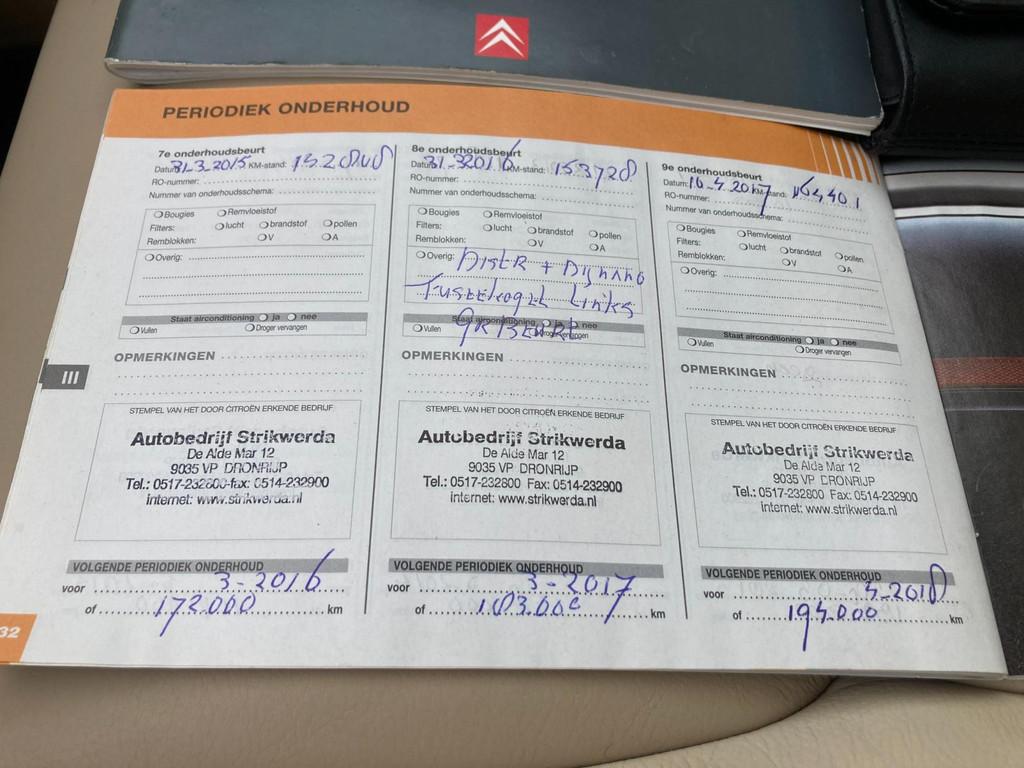 PERIODIEK ONDERHOUD
7e onderhoudsbeurt
Datum: 31-3-2015 KM-stand:
RO-nummer:
Nummer van onderhoudsschema:
Bougies Remvloeistof
Filters: lucht brandstof pollen
Remblokken: V A
Overig:
Staat airconditioning ja nee
Vullen Droger vervangen
OPMERKINGEN
STEMPEL VAN HET DOOR CITROËN ERKENDE BEDRIJF
Autobedrijf Strikwerda
De Alde Mar 12
9035 VP DRONRIJP
Tel.: 0517-232800 fax: 0514-232900
internet: www.strikwerda.nl
VOLGENDE PERIODIEK ONDERHOUD
voor 3-2016
of 172.000 km
8e onderhoudsbeurt
Datum: 31-3 2016 KM-stand: 153728
RO-nummer:
Nummer van onderhoudsschema:
Bougies Remvloeistof
Filters: lucht brandstof pollen
Remblokken: V A
Overig: Distr +
Links
Staat airconditioning ja nee
Vullen Droger vervangen
GR BEURT
OPMERKINGEN
STEMPEL VAN HET DOOR CITROËN ERKENDE BEDRIJF
Autobedrijf Strikwerda
De Alde Mar 12
9035 VP DRONRIJP
Tel.: 0517-232800 Fax: 0514-232900
internet: www.strikwerda.nl
VOLGENDE PERIODIEK ONDERHOUD
voor 3-2017
of 183.000 km
9e onderhoudsbeurt
Datum: 10-4-2017 KM-stand: 164,401
RO-nummer:
Nummer van onderhoudsschema:
Bougies Remvloeistof
Filters: lucht brandstof pollen
Remblokken: V A
Overig:
Staat airconditioning ja nee
Vullen Droger vervangen
OPMERKINGEN
STEMPEL VAN HET DOOR CITROËN ERKENDE BEDRIJF
Autobedrijf Strikwerda
De Alde Mar 12
9035 VP DRONRIJP
Tel.: 0517-232800 Fax: 0514-232900
internet: www.strikwerda.nl
VOLGENDE PERIODIEK ONDERHOUD
voor 4-2018
of 194.000 km
III
32